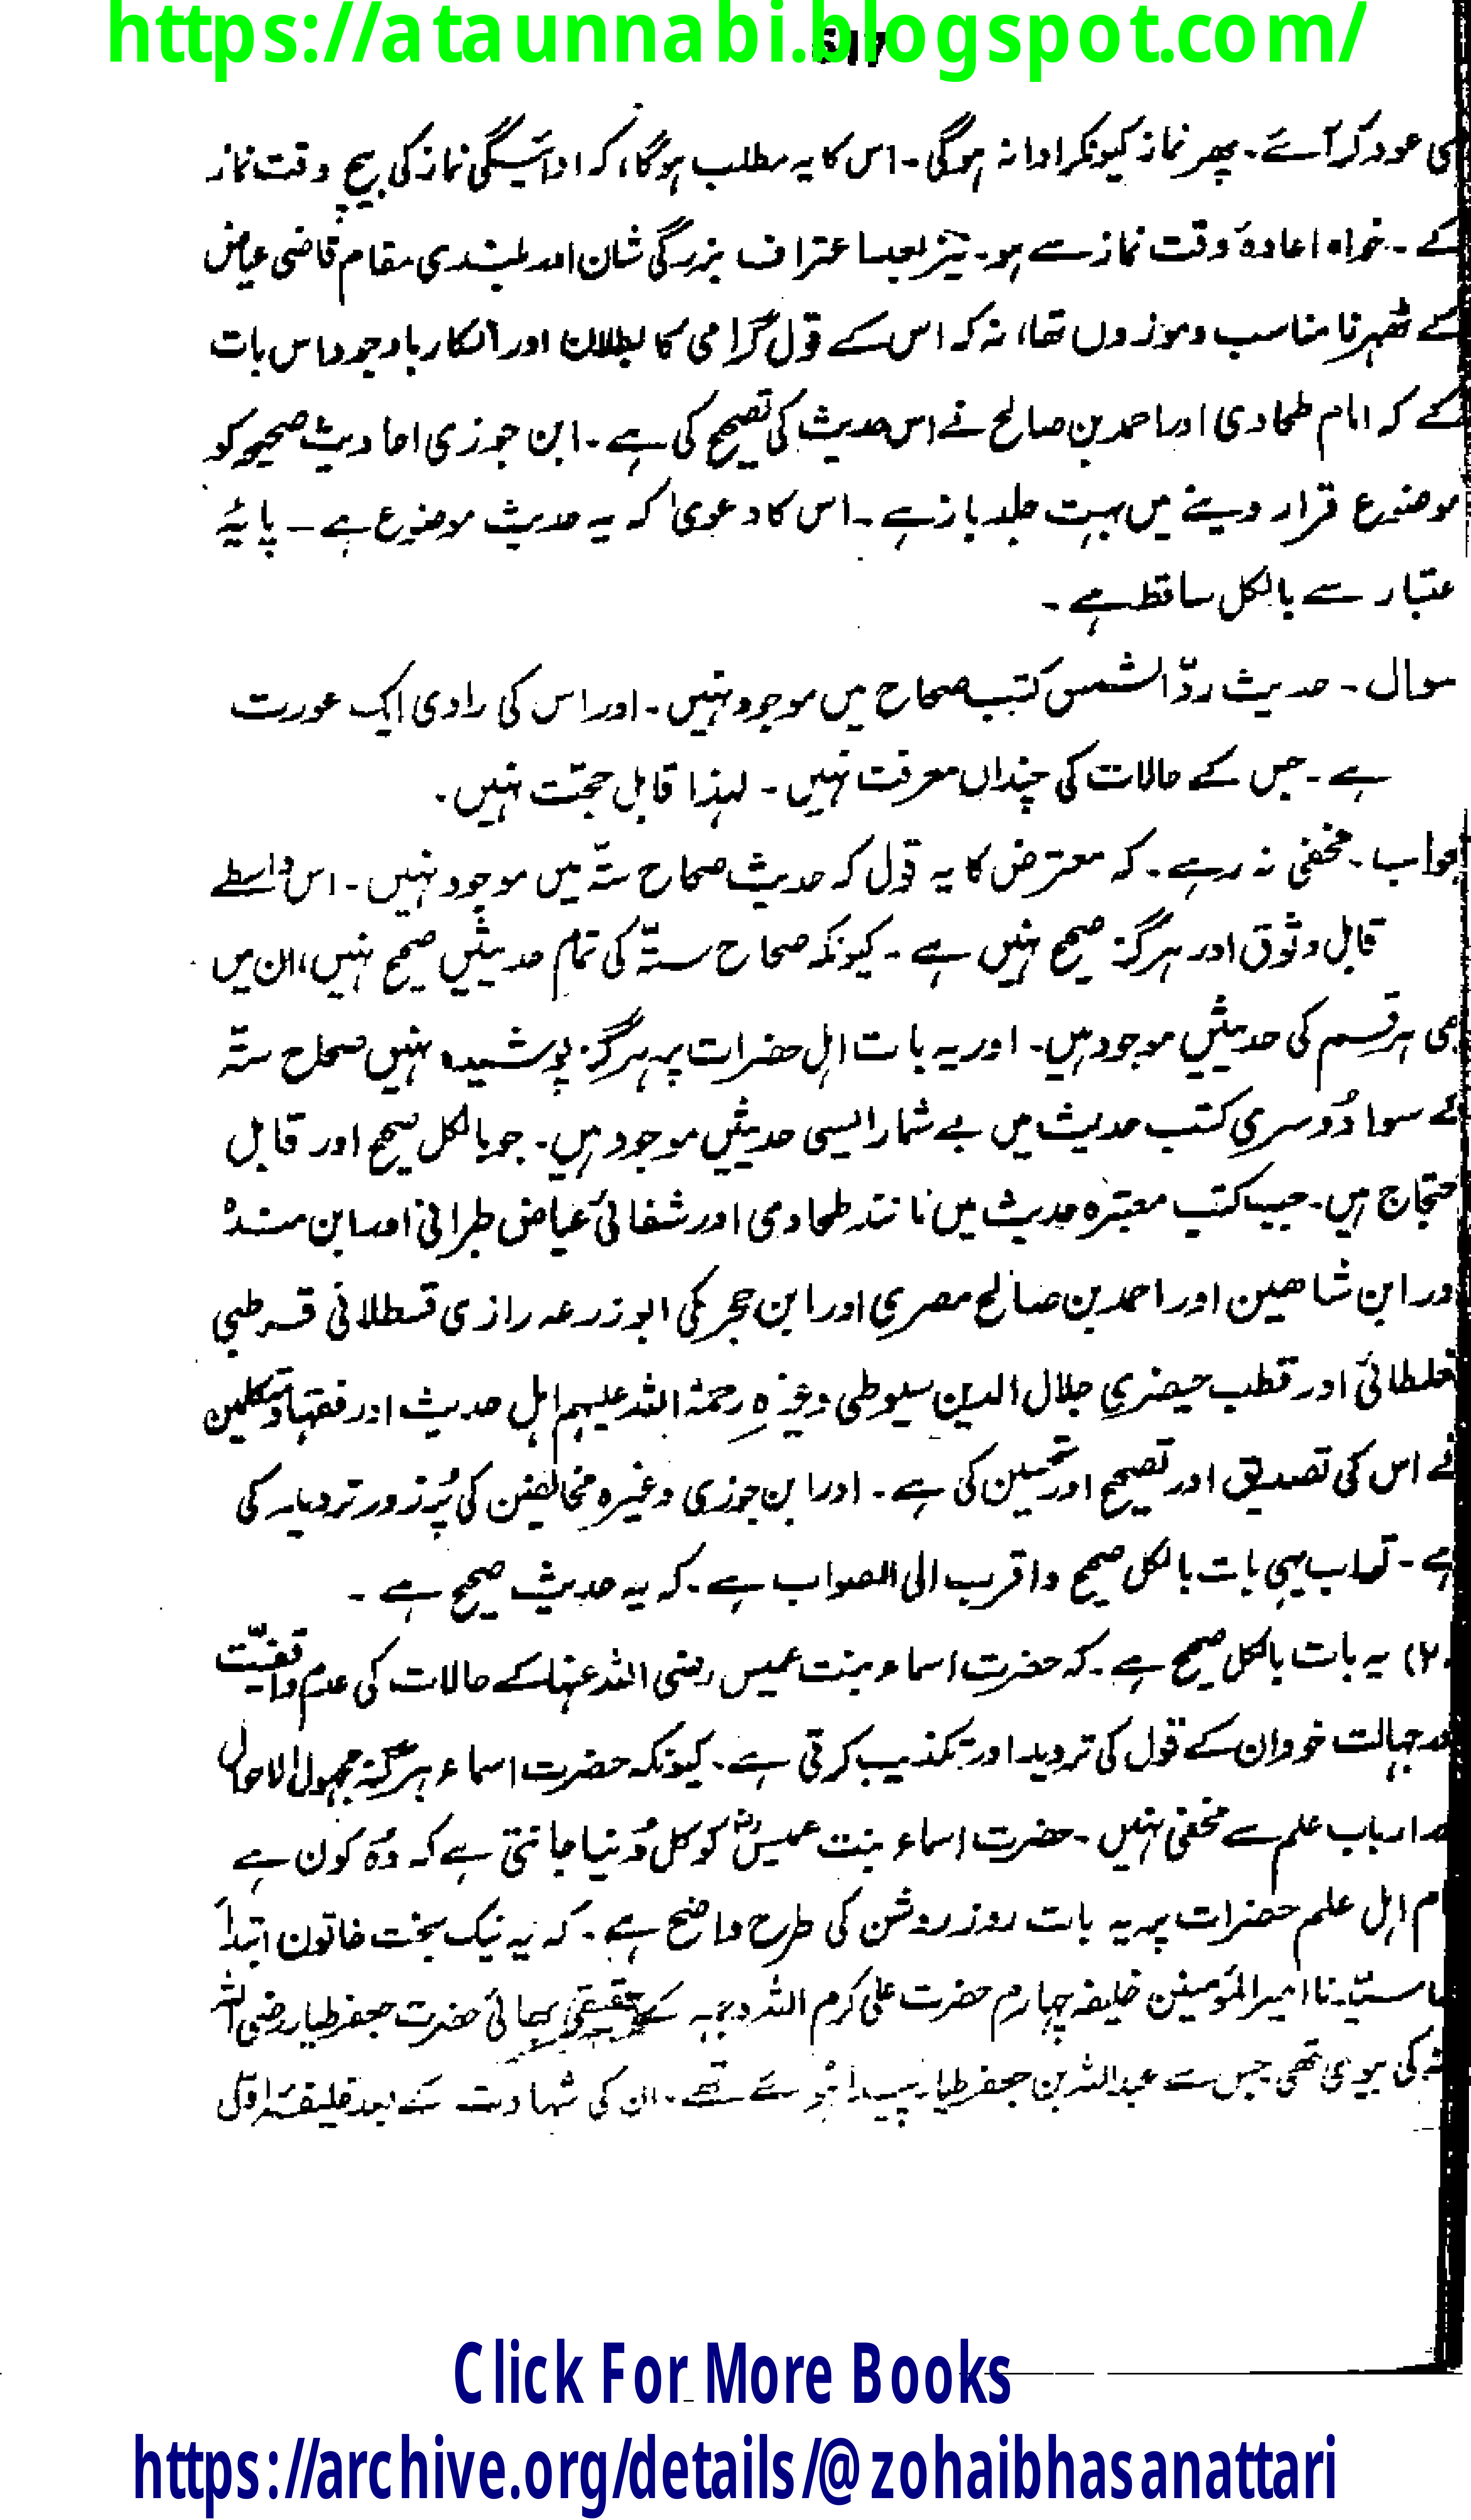 https://ataunnabi.blogspot.com/
517
عود کر آئے۔ پھر نماز کیونکر ادا نہ ہوگی۔ اس کا یہ مطلب ہوگا، کہ ادائیگی نماز کی بیچ وقت نماز
کے۔ خواہ اعادۂ وقت نماز سے ہو۔ نیز اعتراف بزرگی شان اور بلندی مقام قاضی عیاض
کے ٹھہرنا مناسب و موزوں تھا، نہ کہ اس کے قول گرامی کا بطلان اور انکار باوجود اس بات
کے کہ امام طحاوی اور احمد بن صالح نے اس حدیث کی تصحیح کی ہے۔ ابن جوزی احادیث صحیحہ کو
موضوع قرار دینے میں بہت جلد باز ہے۔ اس کا دعویٰ کہ یہ حدیث موضوع ہے۔ پایۂ
عتبار سے بالکل ساقط ہے۔
سوال۔ حدیث ردّ الشمس کتب صحاح میں موجود نہیں۔ اور اس کی راوی ایک عورت
ہے۔ جس کے حالات کی چنداں معرفت نہیں۔ لہٰذا قابل حجّت نہیں۔
جواب۔ مخفی نہ رہے۔ کہ معترض کا یہ قول کہ حدیث صحاح ستّہ میں موجود نہیں۔ اس واسطے
قابل وثوق اور ہرگز صحیح نہیں ہے۔ کیونکہ صحاح ستّہ کی تمام حدیثیں صحیح نہیں، ان میں
ہی ہر قسم کی حدیثیں موجود ہیں۔ اور یہ بات اہل حضرات پہ ہرگز پوشیدہ نہیں صحاح ستّہ
کے سوا دُوسری کتب حدیث میں بے شمار ایسی حدیثیں موجود ہیں۔ جو بالکل صحیح اور قابل
حتجاج ہیں۔ جیسے کتب معتبرہ حدیث میں مانند طحاوی اور شفائے عیاض طبرانی اور ابن مندہ
اور ابن شاھین اور احمد بن صالح مصری اور ابن حجر مکی ابو زرعہ رازی قسطلانی قرطبی
مغلطائی اور قطب حیضری جلال الدین سیوطی وغیرہ رحمۃ اللہ علیہم اہل حدیث اور فقہاء و متکلمین
نے اس کی تصدیق اور تصحیح اور تحسین کی ہے۔ اور ابن جوزی وغیرہ مخالفین کی پُر زور تردید کی
ہے۔ تو اب یہی بات بالکل صحیح و اقرب الی الصواب ہے۔ کہ یہ حدیث صحیح ہے۔
(۲) یہ بات بالکل صحیح ہے۔ کہ حضرت اسماء بنت عمیس رضی اللہ عنہا کے حالات کی عدم واقفیّت
اور جہالت خود ان کے قول کی تردید اور تکذیب کرتی ہے۔ کیونکہ حضرت اسماء ہرگز مجہول الاحوال
اور ارباب علم سے مخفی نہیں۔ حضرت اسماء بنت عمیسؓ کو کل دُنیا جانتی ہے کہ وُہ کون ہے
ام اہل علم حضرات پہ یہ بات روز روشن کی طرح واضح ہے۔ کہ یہ نیک بخت خاتون ابتدأ
سیّدنا امیر المؤمنین خلیفہ چہارم حضرت علی کرم اللہ وجہہ کے حقیقی بھائی حضرت جعفر طیار رضی اللہ
کی بیوی تھی جس سے عبداللہ بن جعفر طیار پیدا ہوئے تھے۔ ان کی شہادت کے بعد خلیفۂ اوّل
Click For More Books
https://archive.org/details/@zohaibhasanattari